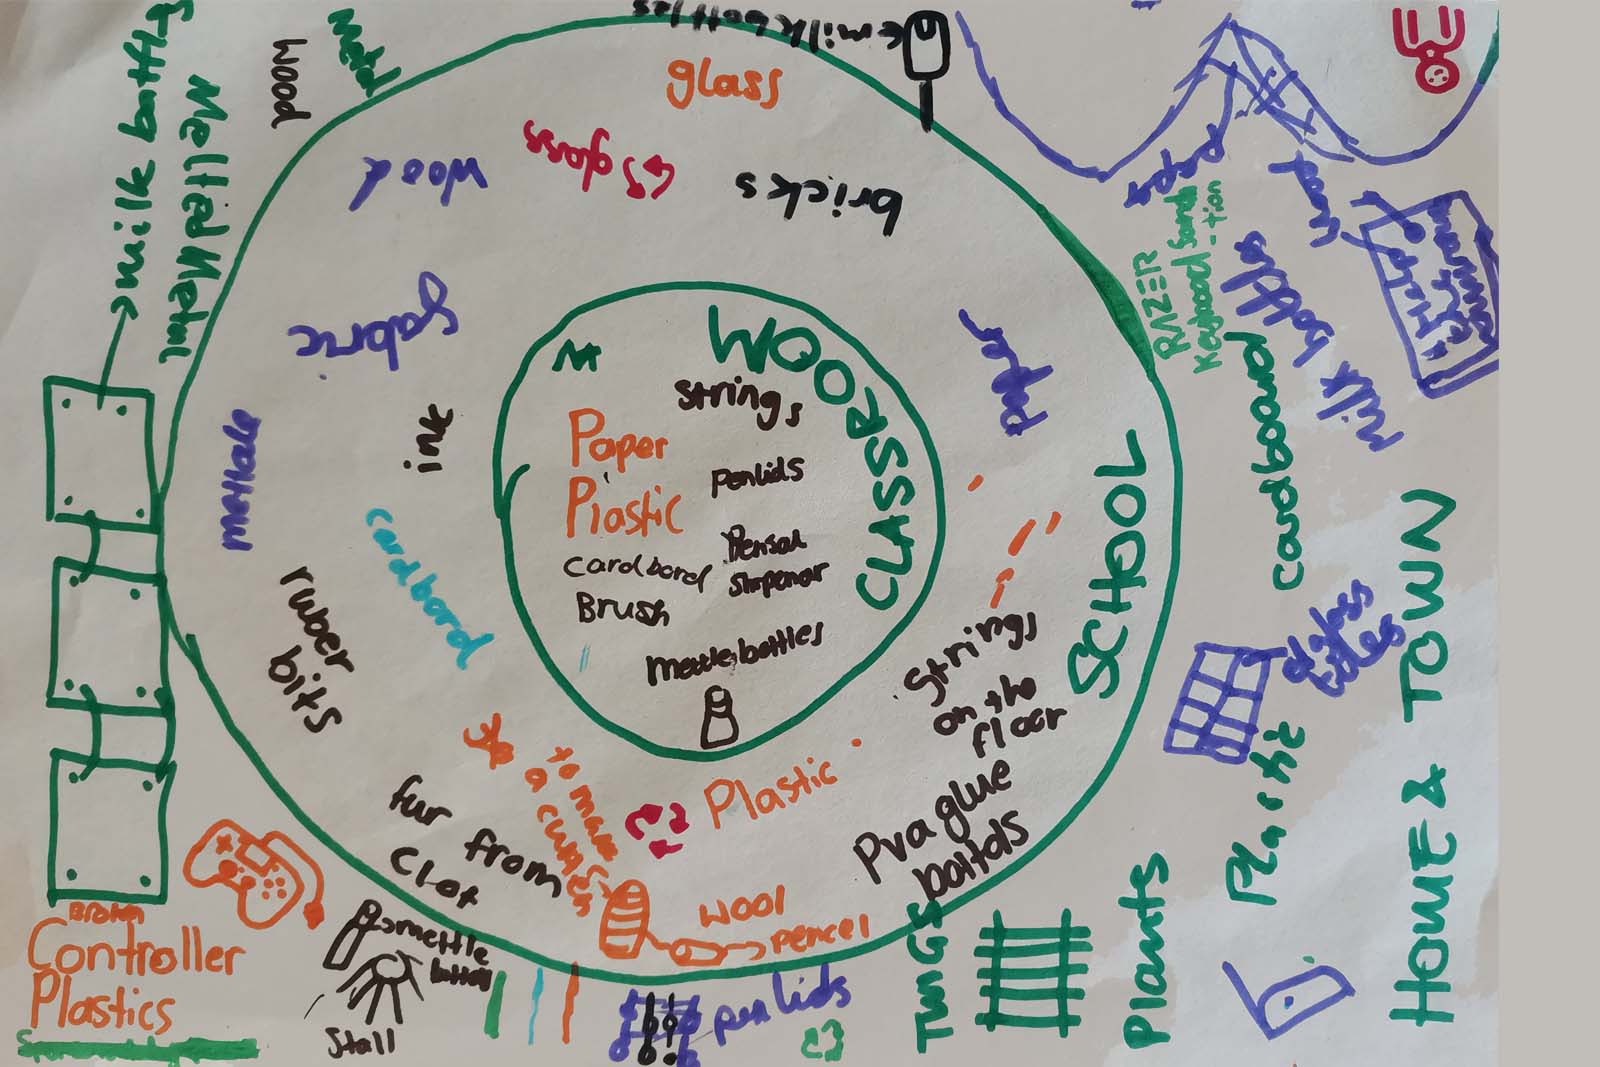 CLASSROOM
strings
Paper
penlids
Plastic
Pensal
sharpenar
cardbord
Brush
mettle bottles
SCHOOL
glass
glass
bricks
wood
fabric
ink
paper
mettale
cardbord
ruber
bits
strings
on the
floor
Plastic
fur from
clot
to make
a
wool
pencel
Pva glue
bottols
HOME & TOWN
milk bottles
wood
Metal
milk bottles
Mellted Metal
RAZER
milk bottles
cardboard
glass
tiles
Plastic
Plants
TWIGS
pen lids
mettle
Stall
Broken
Controller
Plastics